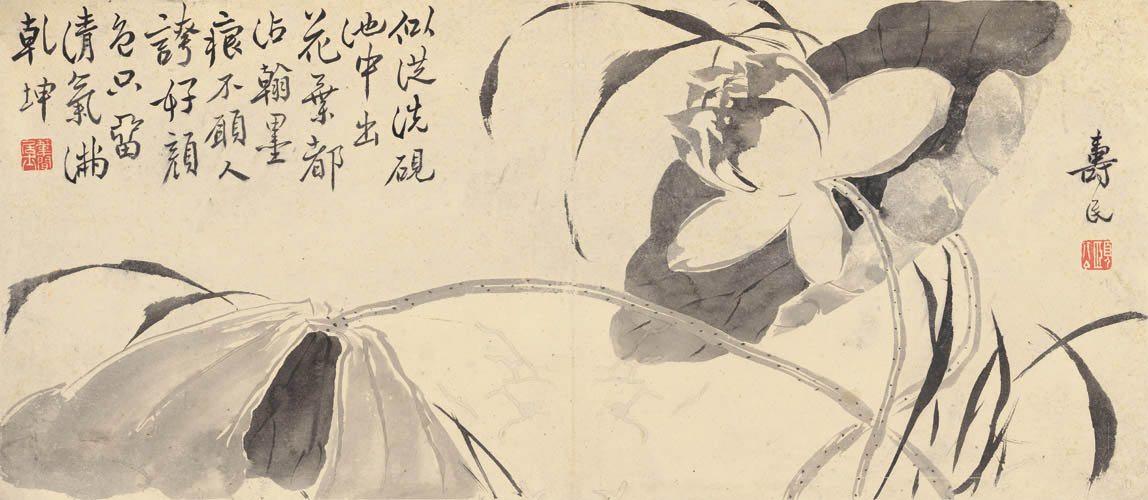 壽民
頤公
似從洗硯
池中出
花葉都
沾翰墨
痕不願人
誇好顏
色只留
清氣滿
乾坤